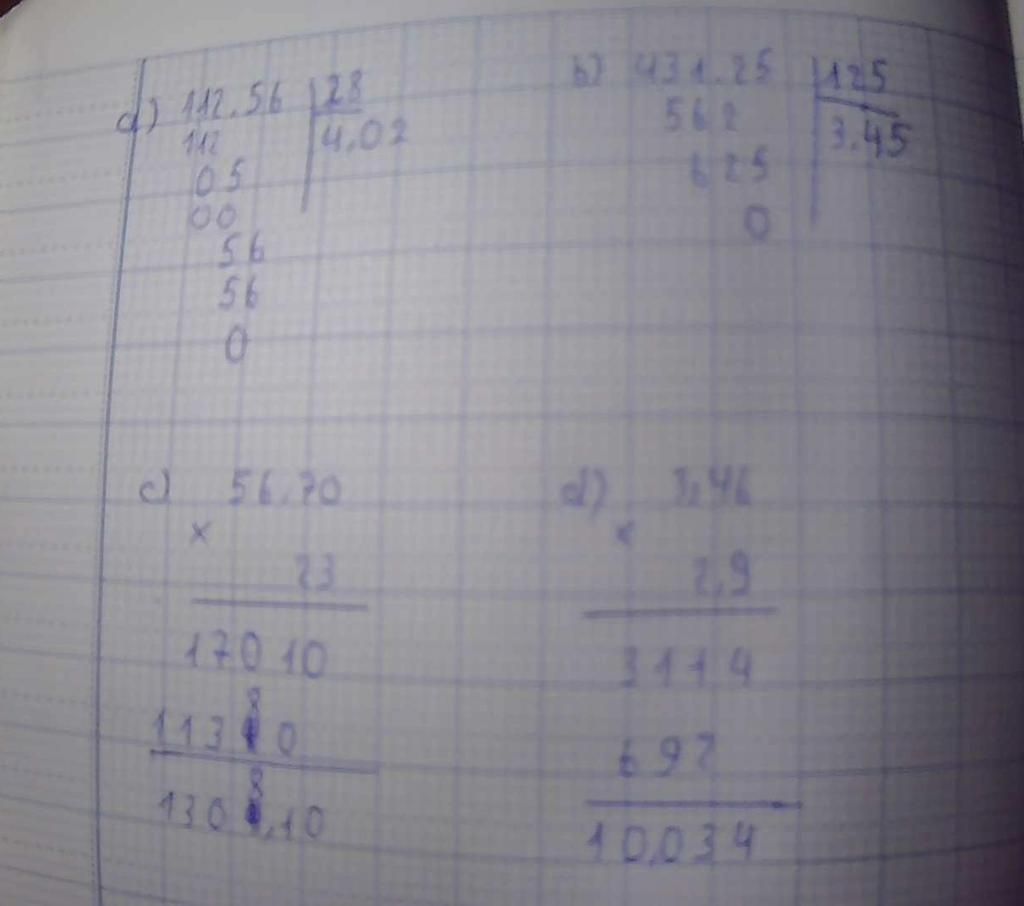 a) 112.56 28
112 4.02
05
00
56
56
0
b) 431.25 125
562 3.45
625
0
c) 56.70
×
23
17010
11340
1308.10
d) 3,46
×
2,9
3114
692
10,034